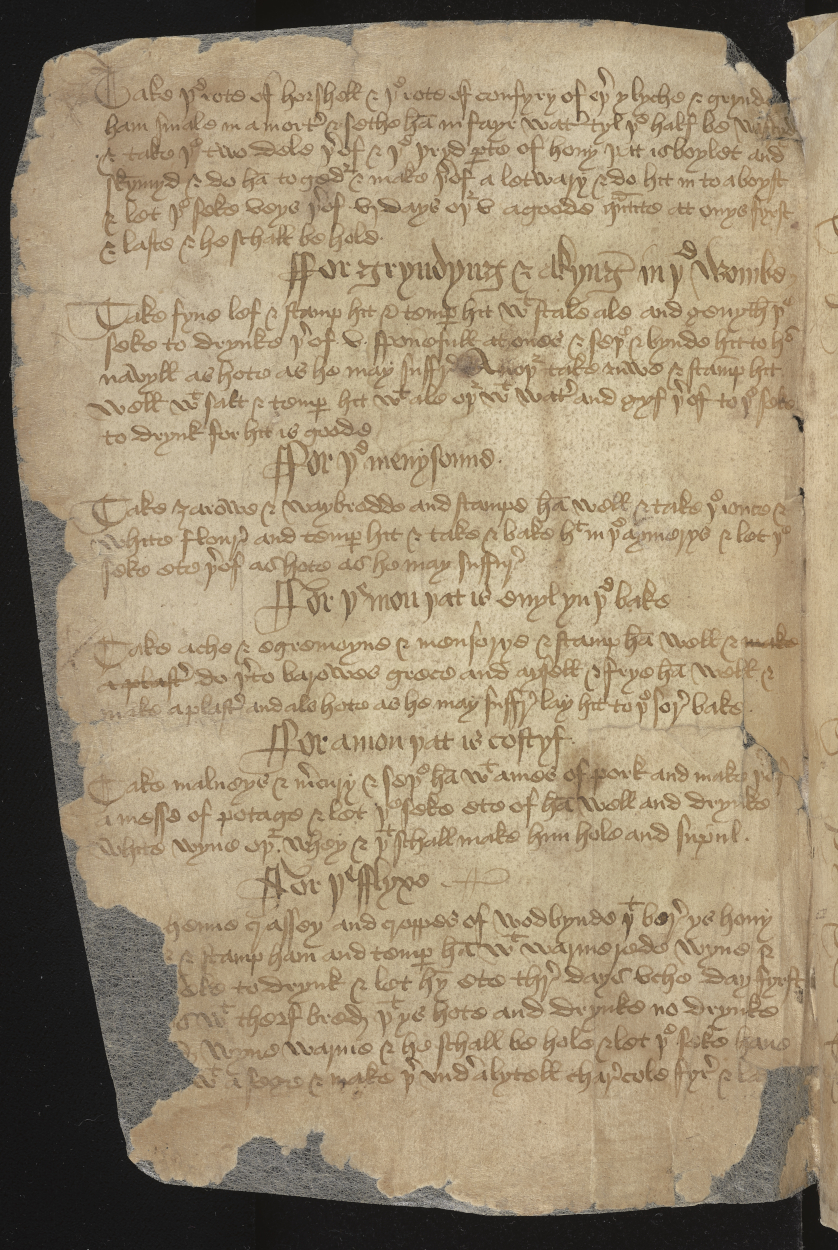 Take þe rote of horshell & þe rote of confyry of eþer ylyche & grynde
ham smale in a morter & sethe hā in fayr water tyl þe half be wasted
& take þe two dele þerof & þe þryd perte of hony þat is boylet and
skymyd & do hā togeder & make þerof a letwary & do hit in to a boyst
& let þe seke veys þerof vj days oþer v a goode at onys fyrst
& laste & he schall be hold.
Ffor gryndyng & akyng in þe wombe
Take fyne lef & stamp hit & temper hit wt stale ale and gevyth þe
seke to drynke þerof v sponefull at ones & seþe & bynde hit to hs
navyll as hote as he may suffyr Anoþer take ruwe & stamp hit
well wt salt & temper hit wt ale oþer wt water and gyf þerof to þe seke
to drynk for hit is goode
Ffor þe menysoune.
Take zarowe & waybredde and stampe hā well & take þe ionce &
whitte flour and temper hit & take & bake ht in þe aymerys & let þe
seke ete þerof as hote as he may suffyr
Ffor þe mon þat is evyl yn þe bake
Take ache & egremoyne & mensorye & stamp hā well & make
a plaster do þerto barowes grece and aysell & frye hā well &
make a plaster and als hote as he may suffyr lay hit to þe sor bake.
Ffor a mon þat is costyf.
Take malueys & mercury & seþe hā wt a mes of pork and make
a messe of potage & let þe seke ete of hā well and drynke
whitte wyne oþer whey & þt schall make him hole and
Ffor þe fflyxe
henne and croppes of wodbynde þt berþ ys hony
& stamp ham and temper hā wt warme rede wyne &
seke to drynk & let hȳ ete thre days vche day fyrst
wt therf bred þt ys hote and drynke no drynke
wyne warme & he schall be hole & let þe seke haue
wt a sege & make þer vnder a lytell charcole fyr &